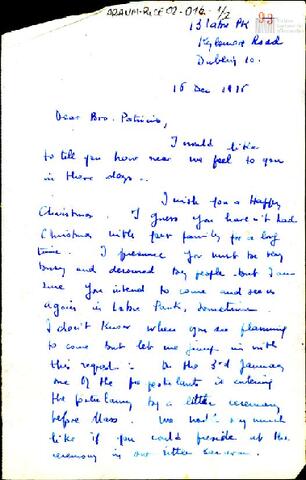 13 Labre Pk
Kylemore Road
Dublin 10.
15 Dec 1975
Dear Bro. Patricio,
I would like
to tell you how near we feel to you
in these days..
I wish you a Happy
Christmas. I guess you haven't had
Christmas with your family for a long
time. I presume you must be very
busy and devoured by people but I am
sure you intend to come and see us
again in Labre Park, sometime.
I don't know when you are planning
to come but let me jump in with
this request: On the 3rd January
one of the pre postulants is entering
the postulancy by a little ceremony
before Mass. We would so much
like if you could preside at the
ceremony in our little